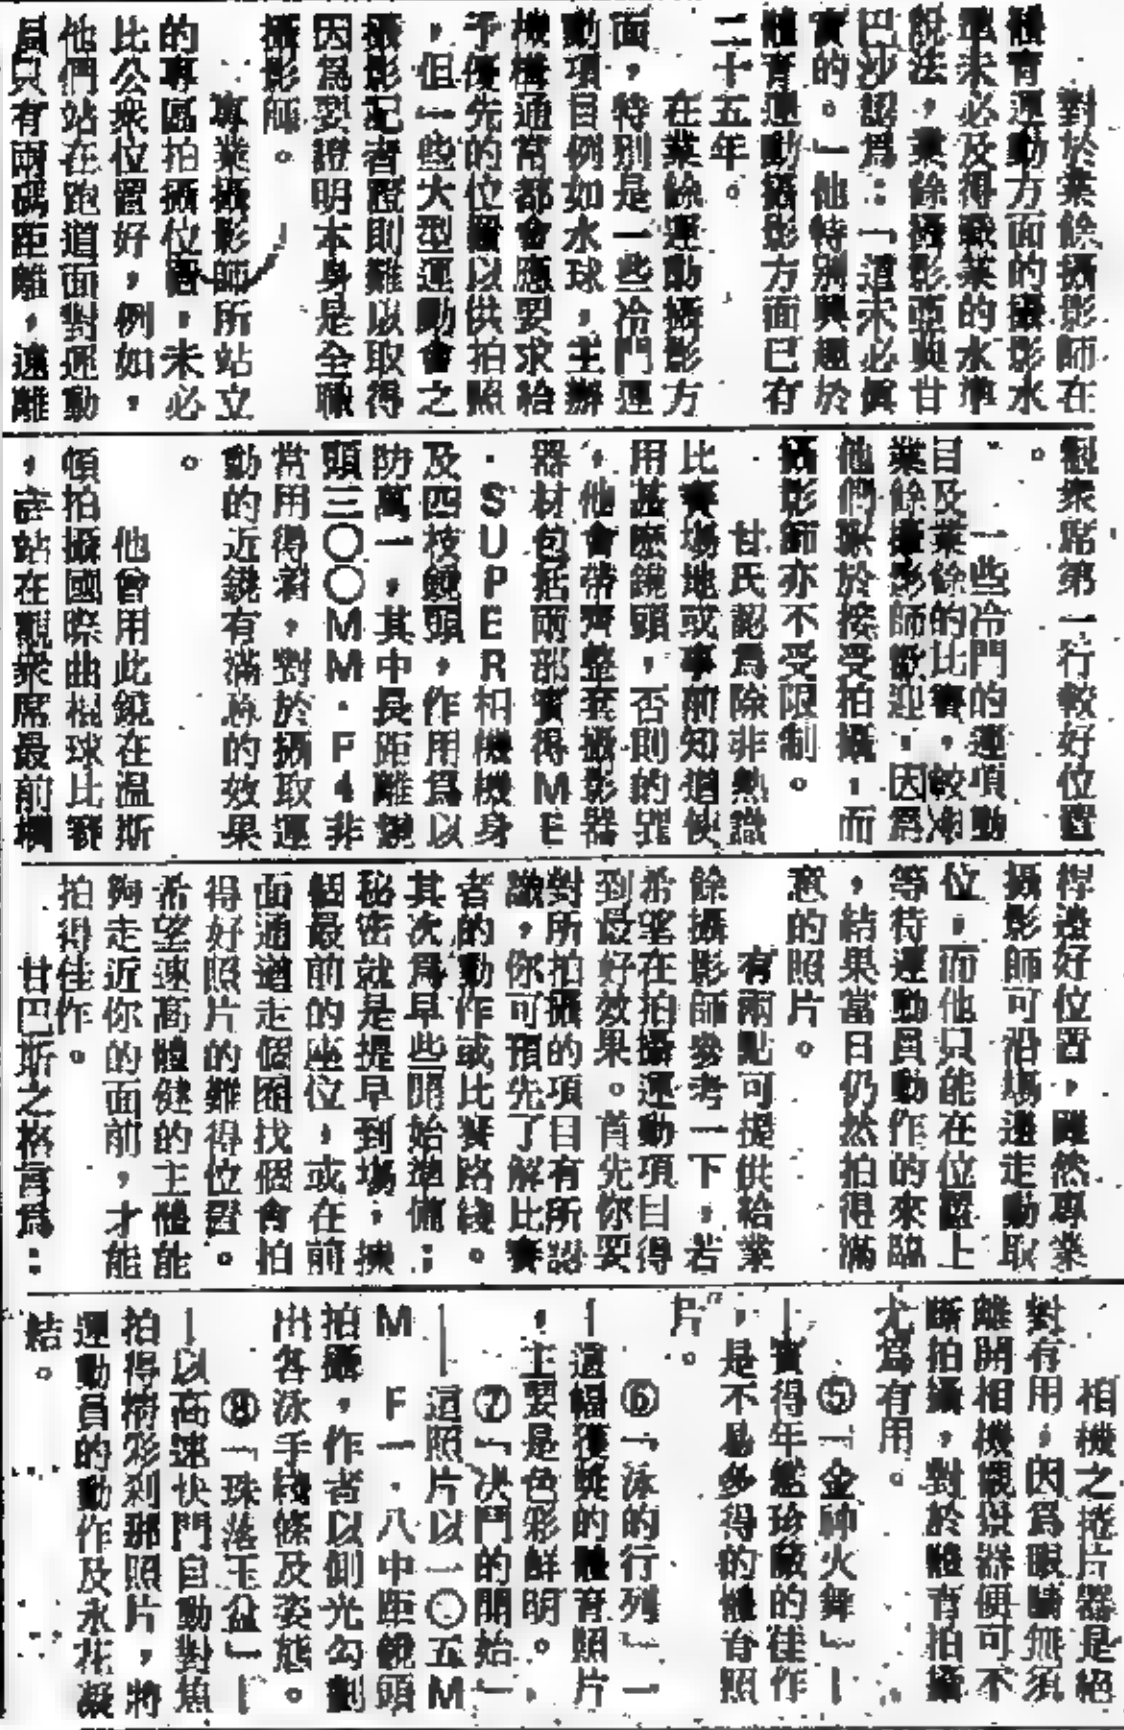 對於業餘攝影師在
體育運動方面的攝影水
準未必及得職業的水準
說法，業餘攝影亞與甘
巴沙認爲：「這未必眞
實的。」他特別興趣於
體育運動攝影方面已有
二十五年。
在業餘運動攝影方
面，特別是一些冷門運
動項目例如水球，主辦
機構通常都會應要求給
予優先的位置以供拍照
，但一些大型運動會之
攝影記者證則難以取得
因爲要證明本身是全職
攝影師。
專業攝影師所站立
的專區拍攝位置，未必
比公衆位置好，例如，
他們站在跑道面對運動
員只有兩碼距離，遠離
觀衆席第一行較好位置
。
一些冷門的運項動
目及業餘的比賽，較
業餘攝影師歡迎，因爲
他們樂於接受拍攝，而
攝影師亦不受限制。
甘氏認爲除非熟識
比賽場地或事前知道使
用甚麽鏡頭，否則的
，他會帶齊整套攝影器
器材包括兩部賓得ME
．SUPER相機機身
及四枝鏡頭，作用爲以
防萬一，其中長距離鏡
頭三〇〇MM．F4非
常用得着，對於攝取運
動的近鏡有滿意的效果
。
他曾用此鏡在溫斯
頓拍攝國際曲棍球比賽
，站在觀衆席最前欄
桿邊好位置，雖然專業
攝影師可沿場邊走動取
位，而他只能在位置上
等待運動員動作的來臨
，結果當日仍然拍得滿
意的照片。
有兩點可提供給業
餘攝影師參考一下，若
希望在拍攝運動項目得
到最好效果。首先你要
對所拍攝的項目有所認
識，你可預先了解比賽
者的動作或比賽路綫。
其次爲早些開始準備；
秘密就是提早到場，揀
個最前的座位，或在前
面通道走個圈找個會拍
得好照片的難得位置。
希望速高體健的主體能
夠走近你的面前，才能
拍得佳作。
甘巴斯之格言爲：
相機之捲片器是絕
對有用，因爲眼睛無須
離開相機觀景器便可不
斷拍攝，對於體育拍攝
尤爲有用。
⑤「金神火舞」—
—賓得年鑑珍藏的佳作
，是不易多得的體育照
片。
⑥「泳的行列」—
—這幅獲獎的體育照片
，主要是色彩鮮明。
⑦「决鬥的開始」
—這照片以一〇五M
M F一．八中距鏡頭
拍攝，作者以側光勾劃
出各泳手綫條及姿態。
⑧「珠落玉盆」—
—以高速快門自動對焦
拍得精彩刹那照片，將
運動員的動作及水花凝
結。